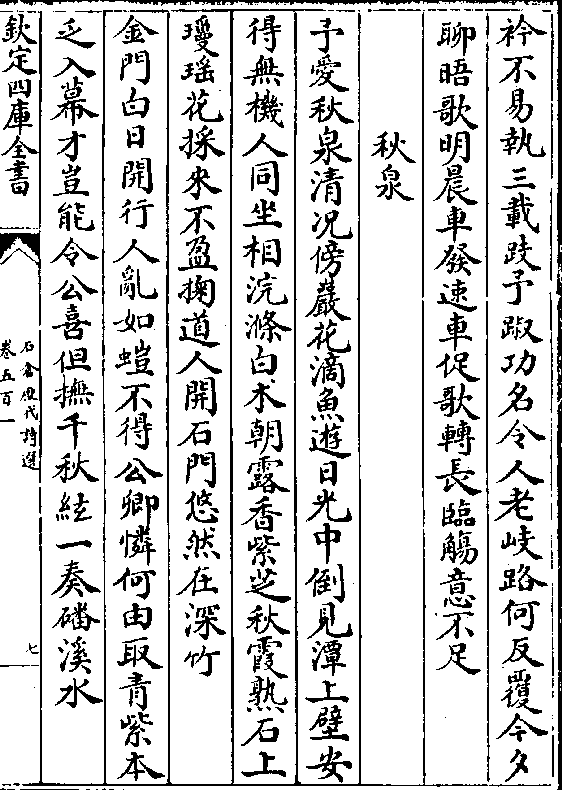 衿不易執三載跂予踧功名令人老岐路何反覆今夕
聊晤歌明晨車發速車促歌轉長臨觴意不足
秋泉
予愛秋泉清况傍巖花滴魚遊日光中倒見潭上壁安
得無機人同坐相浣滌白术朝露香紫芝秋霞熟石上
瓊瑶花採來不盈掬道人開石門悠然在深竹
金門白日開行人亂如螘不得公卿憐何由取青紫本
乏入幕才豈能令公喜但撫千秋絃一奏磻溪水
欽定四庫全書
石倉歷代詩選
卷五百一
七